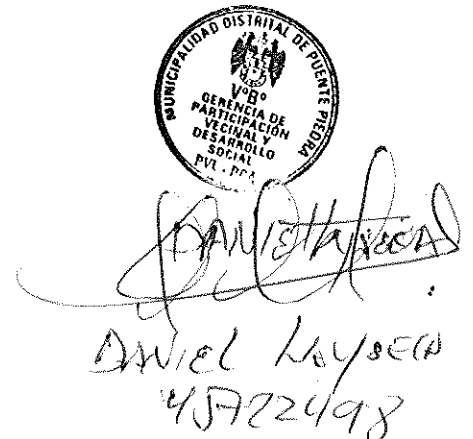 MUNICIPALIDAD DISTRITAL DE PUENTE PIEDRA
V°B°
GERENCIA DE
PARTICIPACIÓN
VECINAL Y
DESARROLLO
SOCIAL
PVL - PCA
DANIEL
45722498